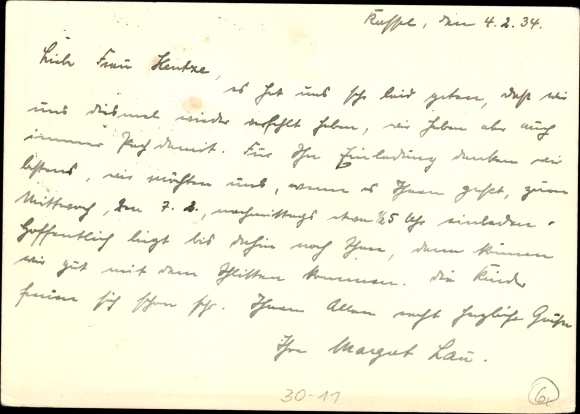 Kassel, den 4.2.34.
Liebe Frau Hentze,
es hat uns sehr leid getan, daß wir
uns diesmal wieder verfehlt haben, wir haben aber auch
immer Pech damit. Für Ihre Einladung danken wir
bestens, wir möchten uns, wenn es Ihnen passt, zum
Mittwoch, den 7. 2., nachmittags etwa ½5 Uhr einladen.
Hoffentlich liegt bis dahin noch Schnee, dann können
wir gut mit dem Schlitten kommen. Die Kinder
freuen sich schon sehr. Ihnen Allen recht herzliche Grüße
Ihre Margret Lau.
30-11
6